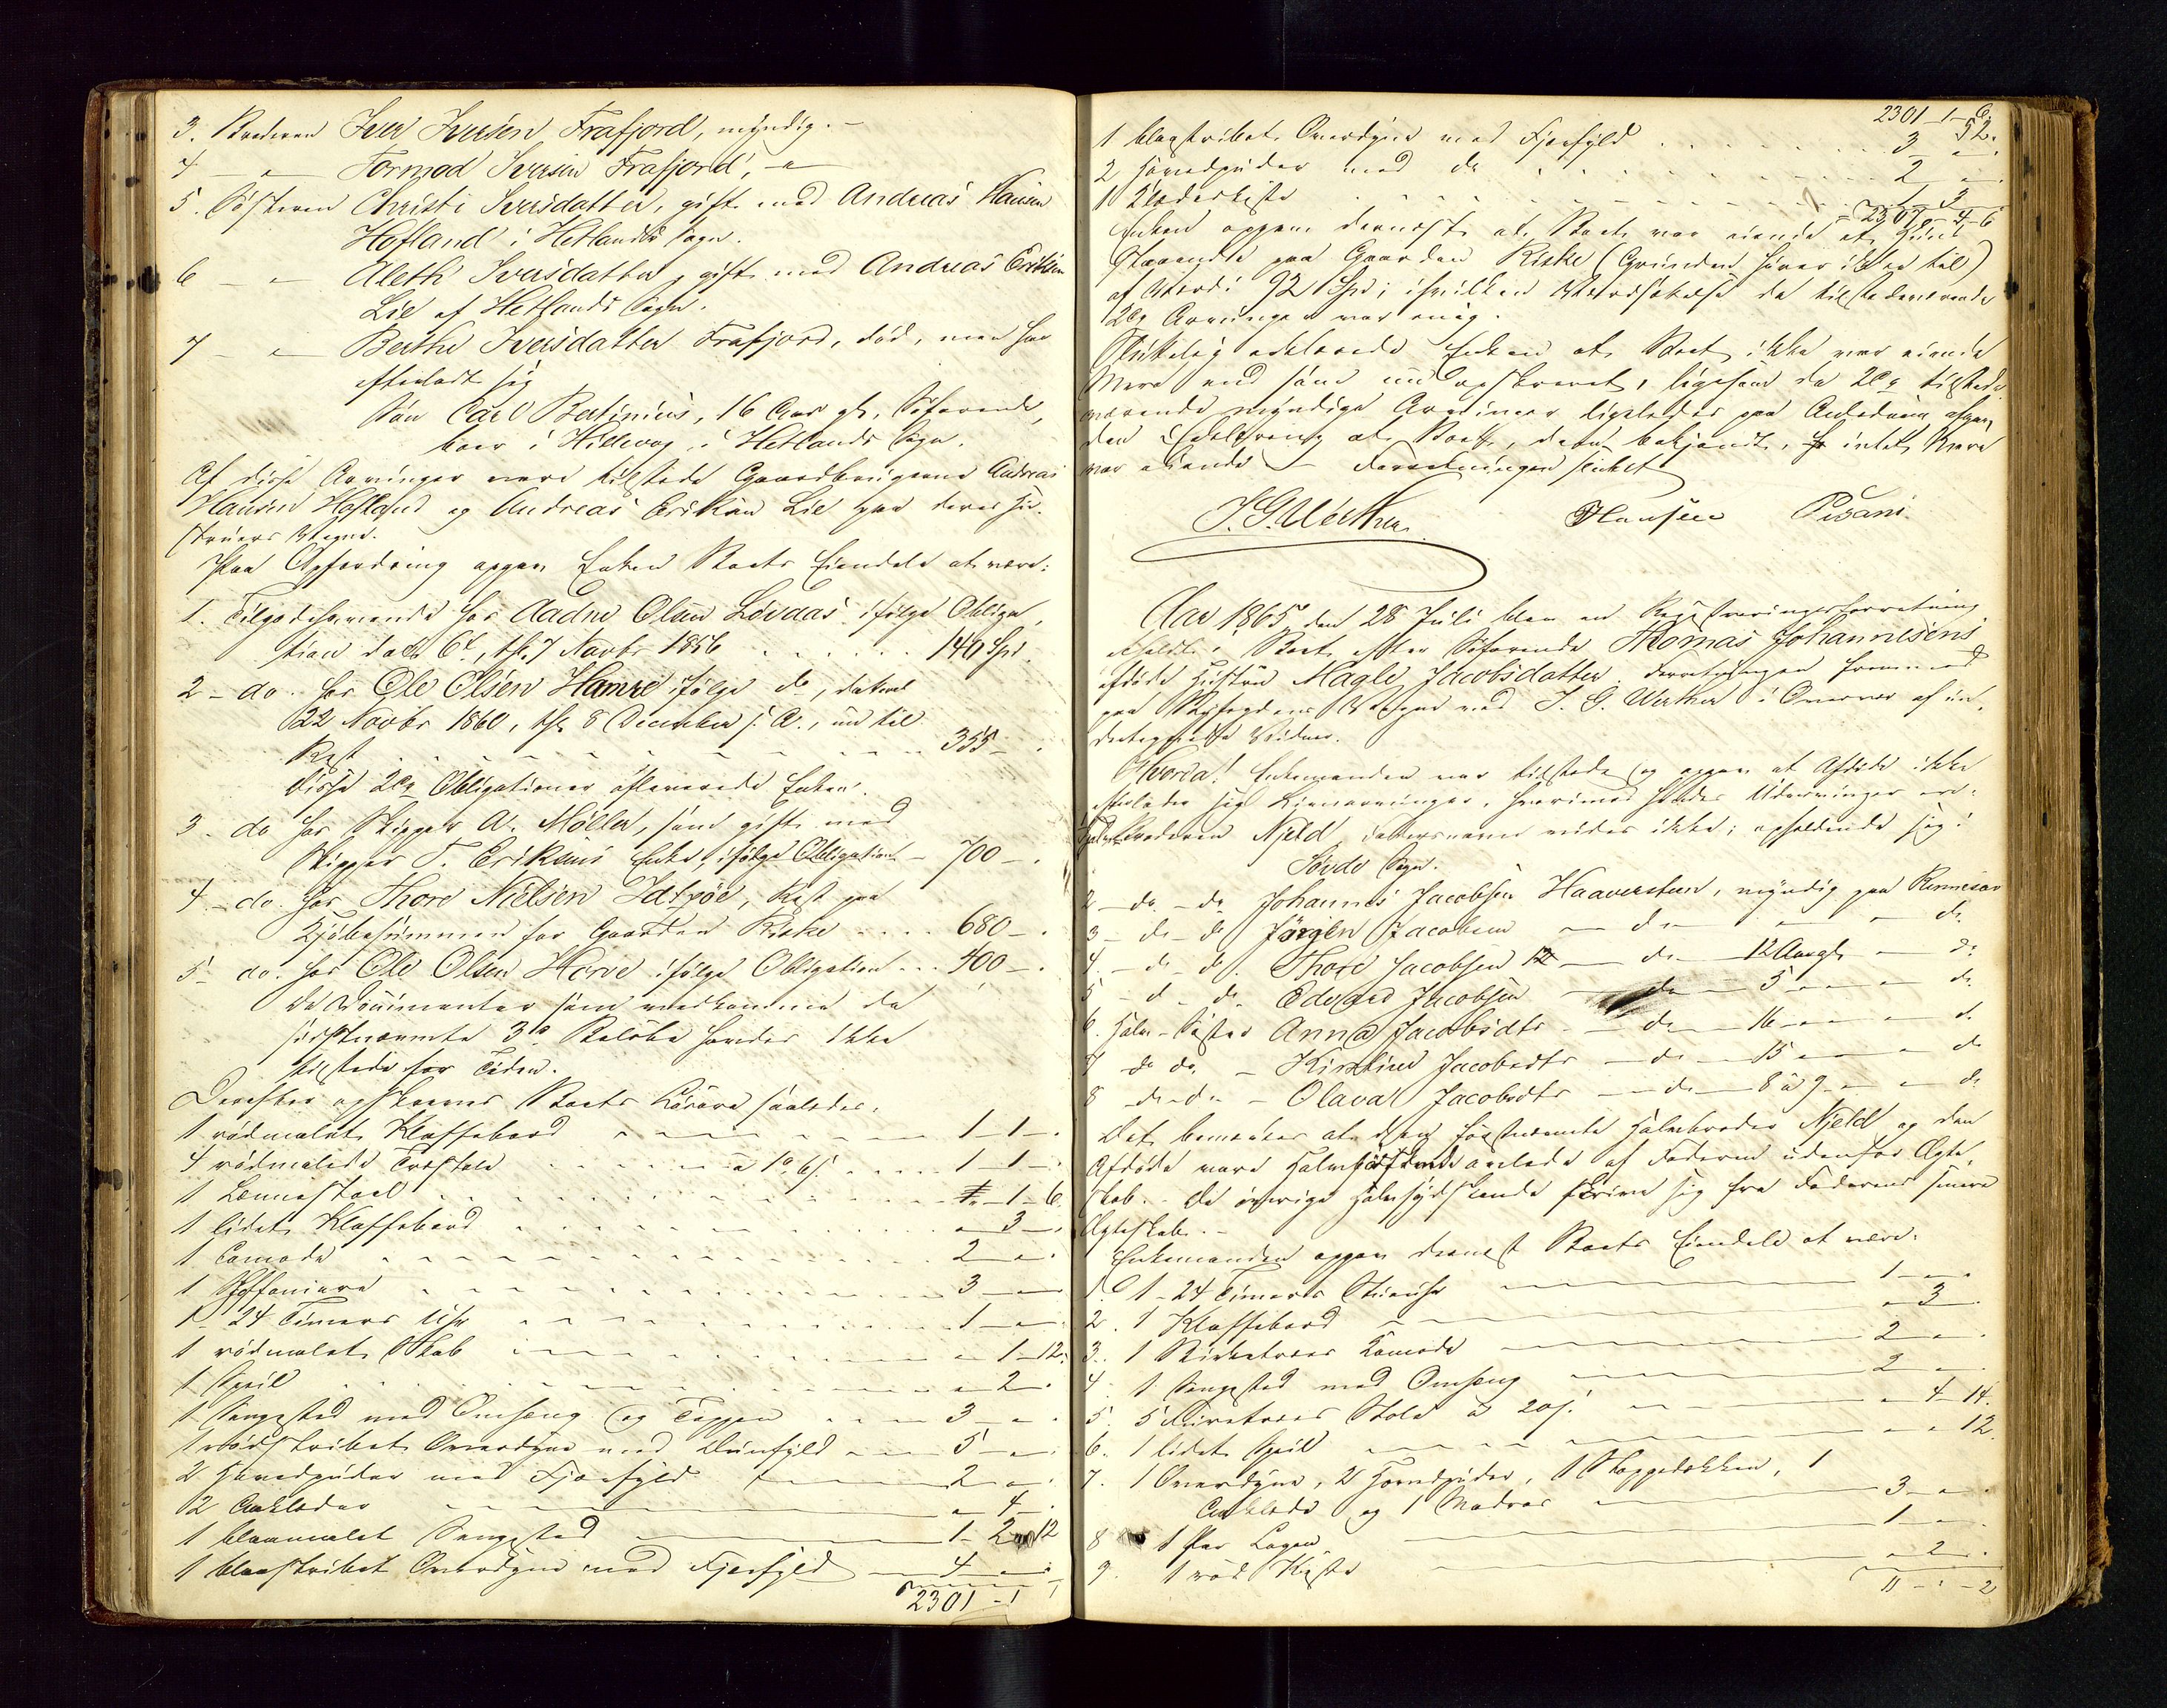 3. Broderen Iver Iversen Frafjord, myndig. -
4 - " - Tormod Iversen Frafjord, - " -
5. Søsteren Christi Iversdatter, gift med Andreas Hansen
Hofland i Hetlands Sogn.
6 - " - Aleth Iversdatter, gift med Andreas Eriksen
Lie af Hetlands Sogn.
7 - " - Berthe Iversdatter Frafjord, død, men har
efterladt sig
Søn Carl Bertinius, 16 Aar gl., Søfarende,
boer i Hillevaag i Hetlands Sogn.
Af disse Arvinger vare tilstede Gaardbrugerne Andreas
Hansen Hofland og Andreas Eriksen Lie paa deres Hu-
struers Vegne.
Paa Opfordring opgav Enken Boets Eiendele at være:
1. Tilgodehavende hos Aadne Olsen Løvaas ifølge Obliga-
tion dat. 6t, thl. 7 Novbr 1856 . . . 140 Spd.
2 - do. hos Ole Olsen Hamre ifølge do, dateret
22 Novbr 1860, thl. 8 December s. A., nu til
Rest . . . 355 - .
Disse 2de Obligationer afleverede Enken.
3 - do hos Skipper A. Möller, som gift med
Skipper T. Eriksens Enke, ifølge Obligation - 700 - .
4 - do. hos Thore Nielsen Idsöe, Rest paa
Kjøbesummen for Gaarden Riske . . . 680 - .
5 - do. hos Ole Olsen Harve ifølge Obligation . . . 400 - .
De Documenter som vedkomme de
sidstnævnte 3de Beløbe havdes ikke
tilstede for Tiden.
Derefter opskreves Boets Løsøre saaledes.
1 rødmalet Klaffebord 1 - 1 - .
4 rødmalede Træstole à 1 ort 6 s. 1 - 1 - .
1 Lænestoel " - 1 - 6.
1 lidet Klaffebord " - 3 - .
1 Comode 2 - " - .
1 Chiffoniere 3 - " -
1 - 24 Timers Uhr 1 - " - .
1 rødmalet Skab " - 1 - 12.
1 Speil " - 2 - .
1 Sengested med Omhæng og Tæppe 3 - " - .
1 rødstribet Overdyne med Duunfyld 5 - " - .
2 Hovedpuder med Fjærfyld 2 - " - .
2 Aaklæder " - 4 - .
1 blaamalet Sengested 1 - 2 - 12
1 blaastribet Overdyne med Fjærfyld 4 - " - .
2301 - 1
2301 - 1 - 6.
1 blaastribet Overdyne med Fjærfyld 3
2 Hovedpuder med do 2 - " - .
1 Klædeskiste 1 - 3
2307 - 4 - 6
Enken opgav dernæst at Boet var eiende et Huus
staaende paa Gaarden Riske (Grunden hører ikke til)
af Værdi 92 Spd; i hvilken Værdsættelse de tilstedeværende
2de Arvinger var enig.
Slutelig erklærede Enken at Boet ikke var eiende
Mere end som nu opskrevet, ligesom de 2de tilstede-
værende myndige Arvinger ligeledes paa Anledning afgav
den Erklæring at Boet, dem bekjendt, intet Mere
var eiende. - Forretningen sluttet
J. G. Werther. Hansen Pisani.
Aar 1865, den 28 Juli blev en Registreringsforretning
afholdt i Boet efter Søfarende Thomas Johannesens
afdøde Hustru Magle Jacobsdatter. Forretningen fremmed
paa Skifefogdens Vegne ved J. G. Werther i Overvær af un-
dertegnede Vidner.
Hvorda! Enkemanden var tilstede og opgav at Afdøde ikke
efterlader sig Livsarvinger, hvorimod hendes Udarvinger ere:
Halvbroderen Njeld, Fadersnavn vides ikke; opholdende sig i
Søvde Sogn.
2 - do. - do Johannes Jacobsen Haaversteen, myndig paa Rennesøe
3 - do - do Jørgen Jacobsen - do - " - do
4. - do - do. Thore Jacobsen - do - 12 Aargl. - do
5 - d. - do. Edvard Jacobsen - do - 5 - " - do
6. Halv-Søster Anna Jacobsdtr. - do - 16 - " - do
7 do do. - Kirstine Jacobsdtr - do - 15 - " - do
8 - do - do - Olava Jacobsdtr - do - 8 à 9 - " - do
Det bemærkes at den førstnævnte Halvbroder Njeld og den
Afdøde vare Halvsødskende avlede af Faderen udenfor Ægte-
skab. - De øvrige Halvsødskende skrive sig fra Faderens senere
Ægteskab. -
Enkemanden opgav dernæst Boets Eiendele at være:
1. 1 - 24 Timers Stueuhr 1 - " - .
2. 1 Klaffebord " - 3 - .
3. 1 Birketræes Comode 2 - " - .
4. 1 Sengested med Omhæng 2 - " - .
5. 5 Furetræes Stole à 20 s. " - 4 - 14.
6. 1 lidet Speil " - " - 12.
7. 1 Overdyne, 2 Hovedpuder, 1 Stoppedækken, 1
Aaklæde og 1 Madras 3 - " - .
8 1 Par Lagen 1 - " - .
9. 1 rød Kiste " - 2 - .
11 - " - 2